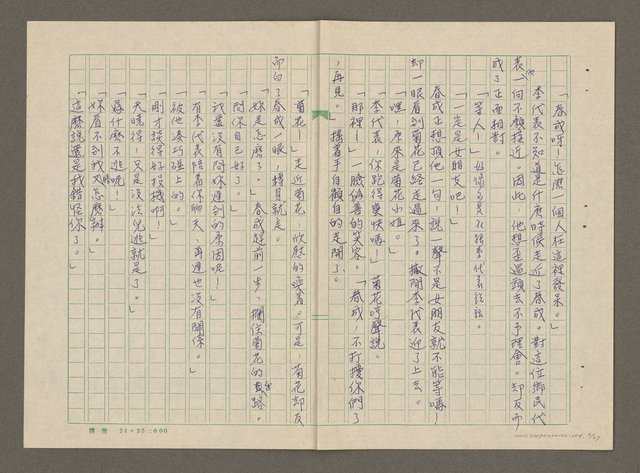 「春成呀！怎麼一個人在這裡發呆。」
李代表不知道是什麼時候走近了春成。對這位鄉民代
表，他一向不願接近，因此，他想歪過頭去不予理會。却反而
成了正面相對。
「等人！」好像多負不起李代表說話。
「一定是女朋友吧！」
春成正想頂他一句，說一聲不是女朋友就不能等嗎！
却一眼看到菊花已經走過來了。撇開李代表迎了上去。
「嘿，原來是菊花小姐。」
「李代表，你跑得蠻快嘛！」菊花哼聲說。
「那裡！」一臉偽善的笑容。「春成，不打擾你們了
，再見。」搖著手自顧自的走開了。
「菊花！」走近菊花，欣慰的喚著。可是，菊花却反
而白了春成一眼，轉身就走。
「妳是怎麼了。」春成趕前一步，攔住菊花的去路。
「問你自己好了。」
「我還沒有問妳遲到的原因呢！」
「有李代表陪着你聊天，再遲也沒有關係。」
「被他湊巧碰上的。」
「剛才談得好投機啊！」
「天曉得，只是沒法兒逃就是了。」
「為什麼不逃呢！」
「妳看不到我怎麼辦。」
「這麼說還是我錯怪你了。」
24×25＝600